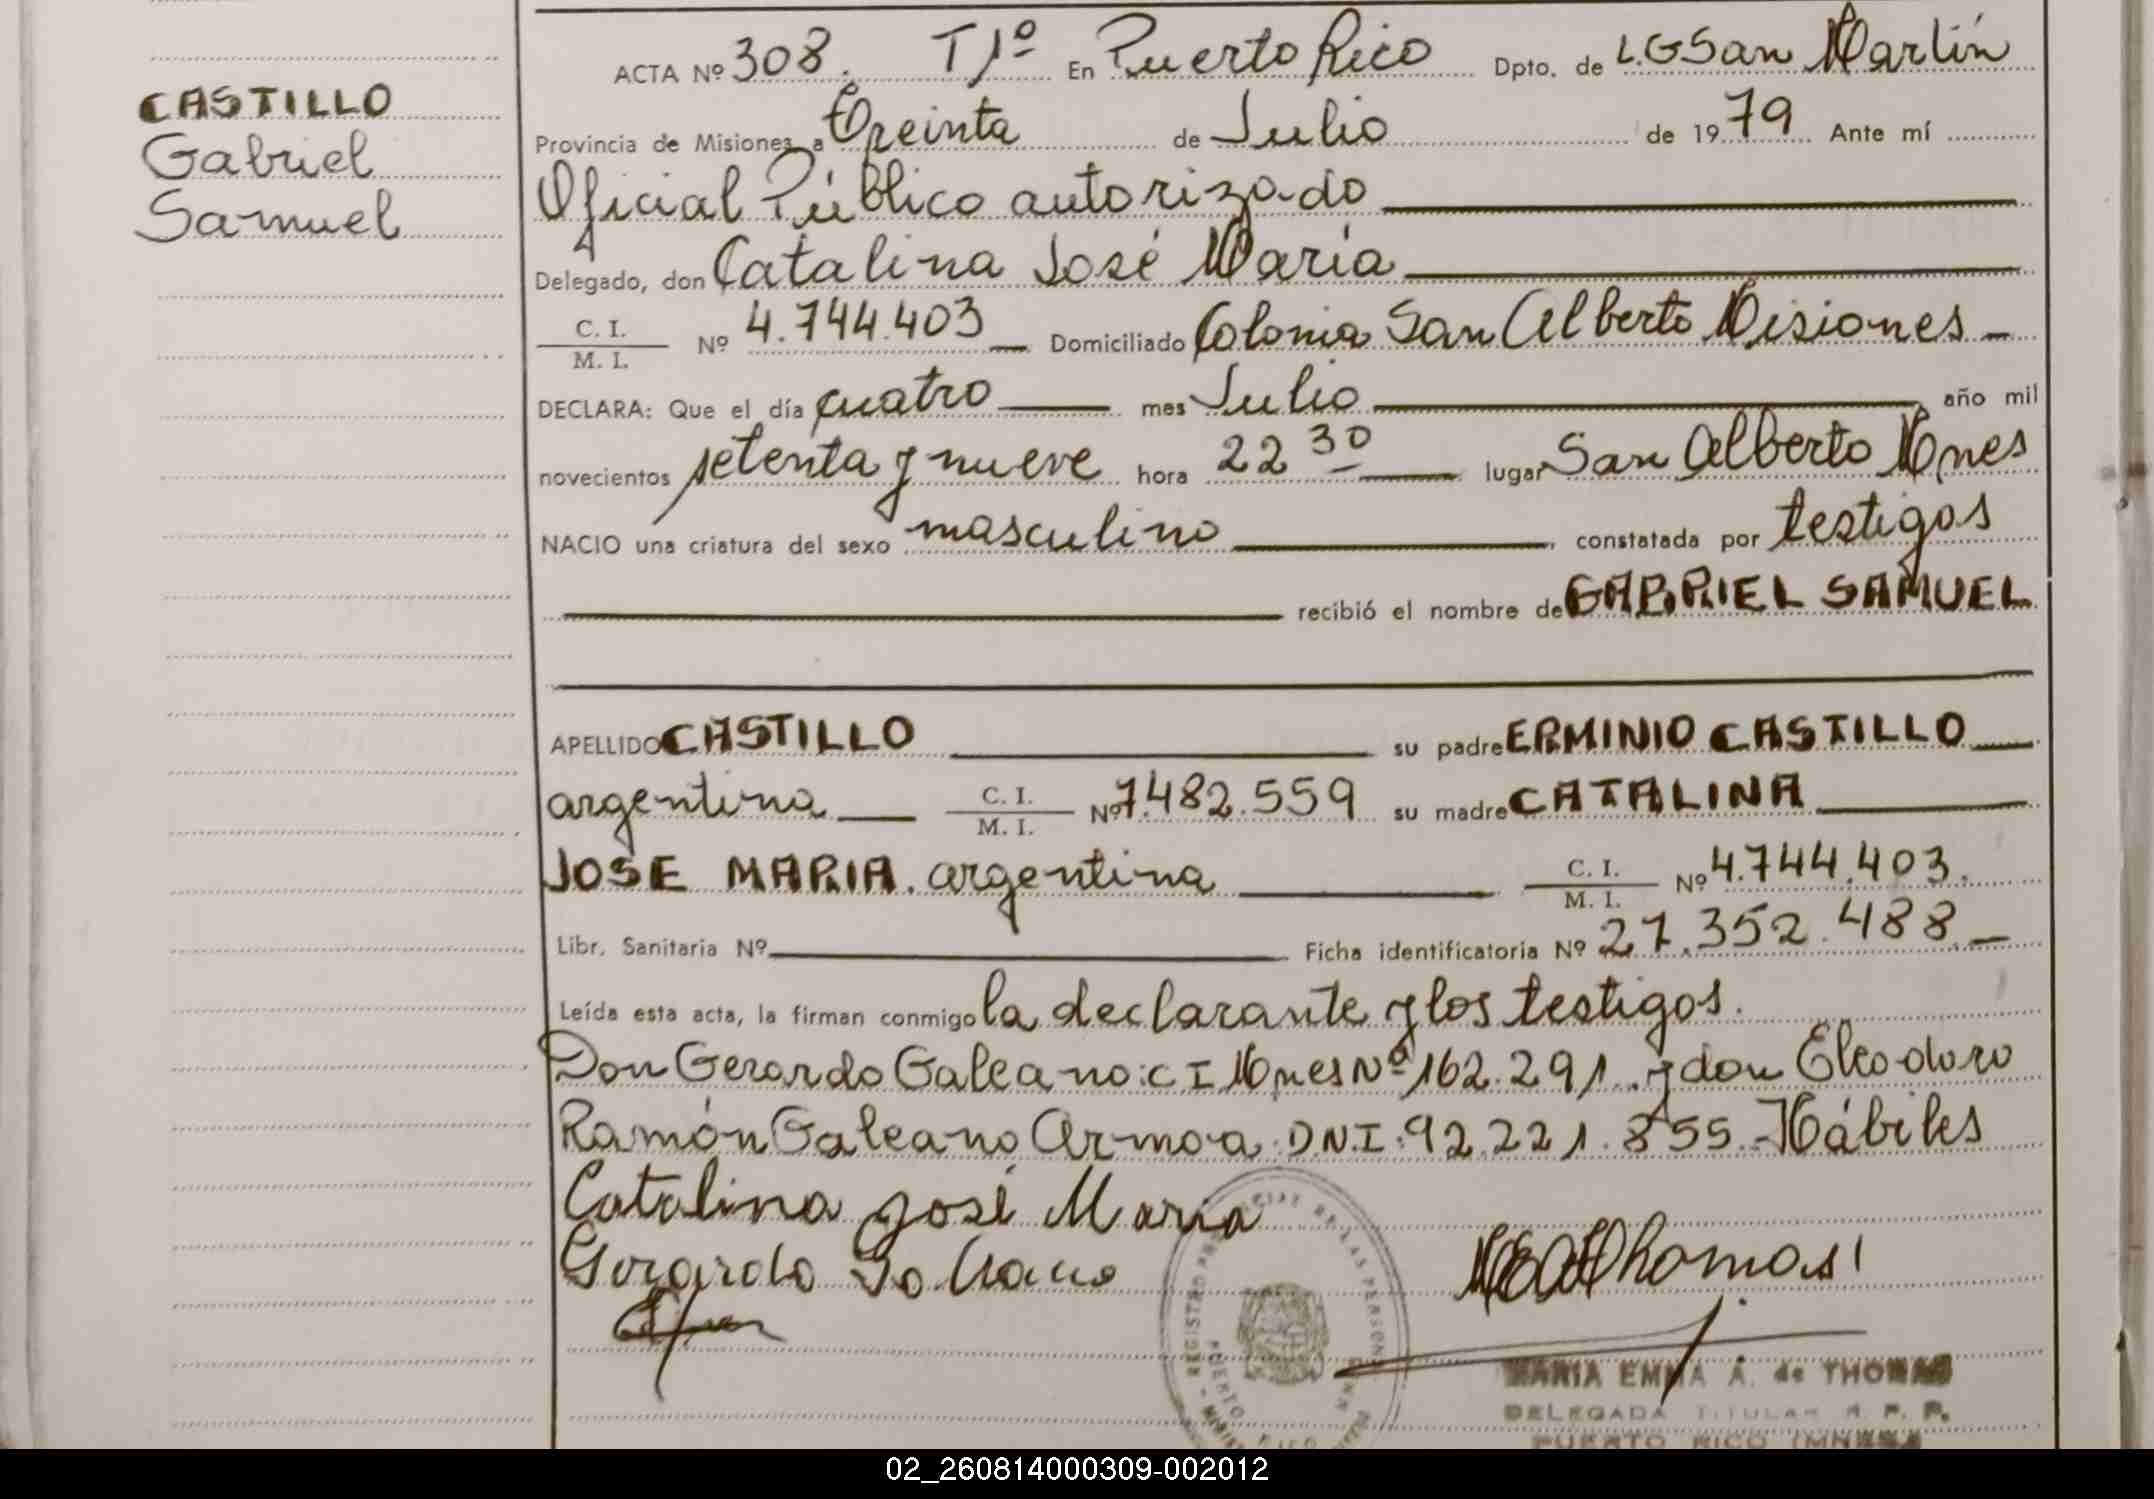 CASTILLO
Gabriel
Samuel
ACTA Nº 308. T1º En Puerto Rico Dpto. de L.G San Martín
Provincia de Misiones a Treinta de Julio de 1979 Ante mí
Oficial Público autorizado
Delegado, don Catalina José María
C. I. / M. I. Nº 4.744.403 Domiciliado Colonia San Alberto Misiones
DECLARA: Que el día cuatro mes Julio año mil
novecientos setenta y nueve hora 22 30 lugar San Alberto Mnes
NACIO una criatura del sexo masculino constatada por testigos
recibió el nombre de GABRIEL SAMUEL
APELLIDO CASTILLO su padre ERMINIO CASTILLO
argentina C. I. / M. I. Nº 7.482.559 su madre CATALINA
JOSE MARIA. argentina C. I. / M. I. Nº 4.744.403.
Libr. Sanitaria Nº Ficha identificatoria Nº 27.352.488.-
Leída esta acta, la firman conmigo la declarante y los testigos.
Don Gerardo Galeano: C I Mnes Nº 162.291. y don Eleodoro
Ramón Galeano Armoa D.N.I. 92.221.855.- Hábiles
Catalina José Maria
Gerardo Galeano
MEA Thomas
MARIA EMMA A. de THOMAS
DELEGADA TITULAR R. P. P.
PUERTO RICO (MNES.)
02_260814000309-002012